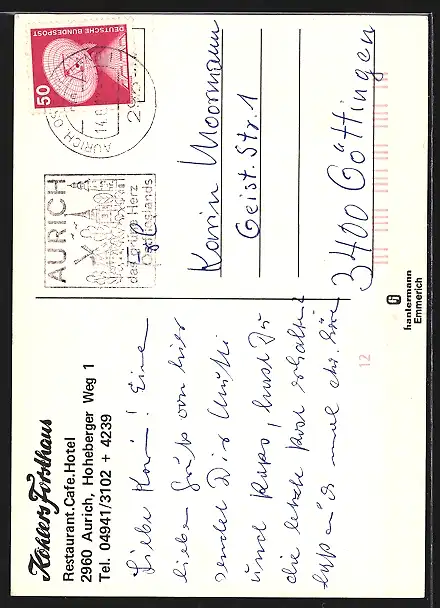 Köhlers Forsthaus
Restaurant.Cafe.Hotel
2960 Aurich, Hoheberger Weg 1
Tel. 04941/3102 + 4239
Liebe Karin! Eine
lieben Gruß von hier
sendet Dir Mutti
und Papa, hast Du
die letzte Post erhalten?
laß mal
DEUTSCHE BUNDESPOST
50
AURICH
14.
AURICH
das grüne Herz
Ostfrieslands
Karin Moormann
Geist.Str. 1
3400 Göttingen
hanlermann
Emmerich
12